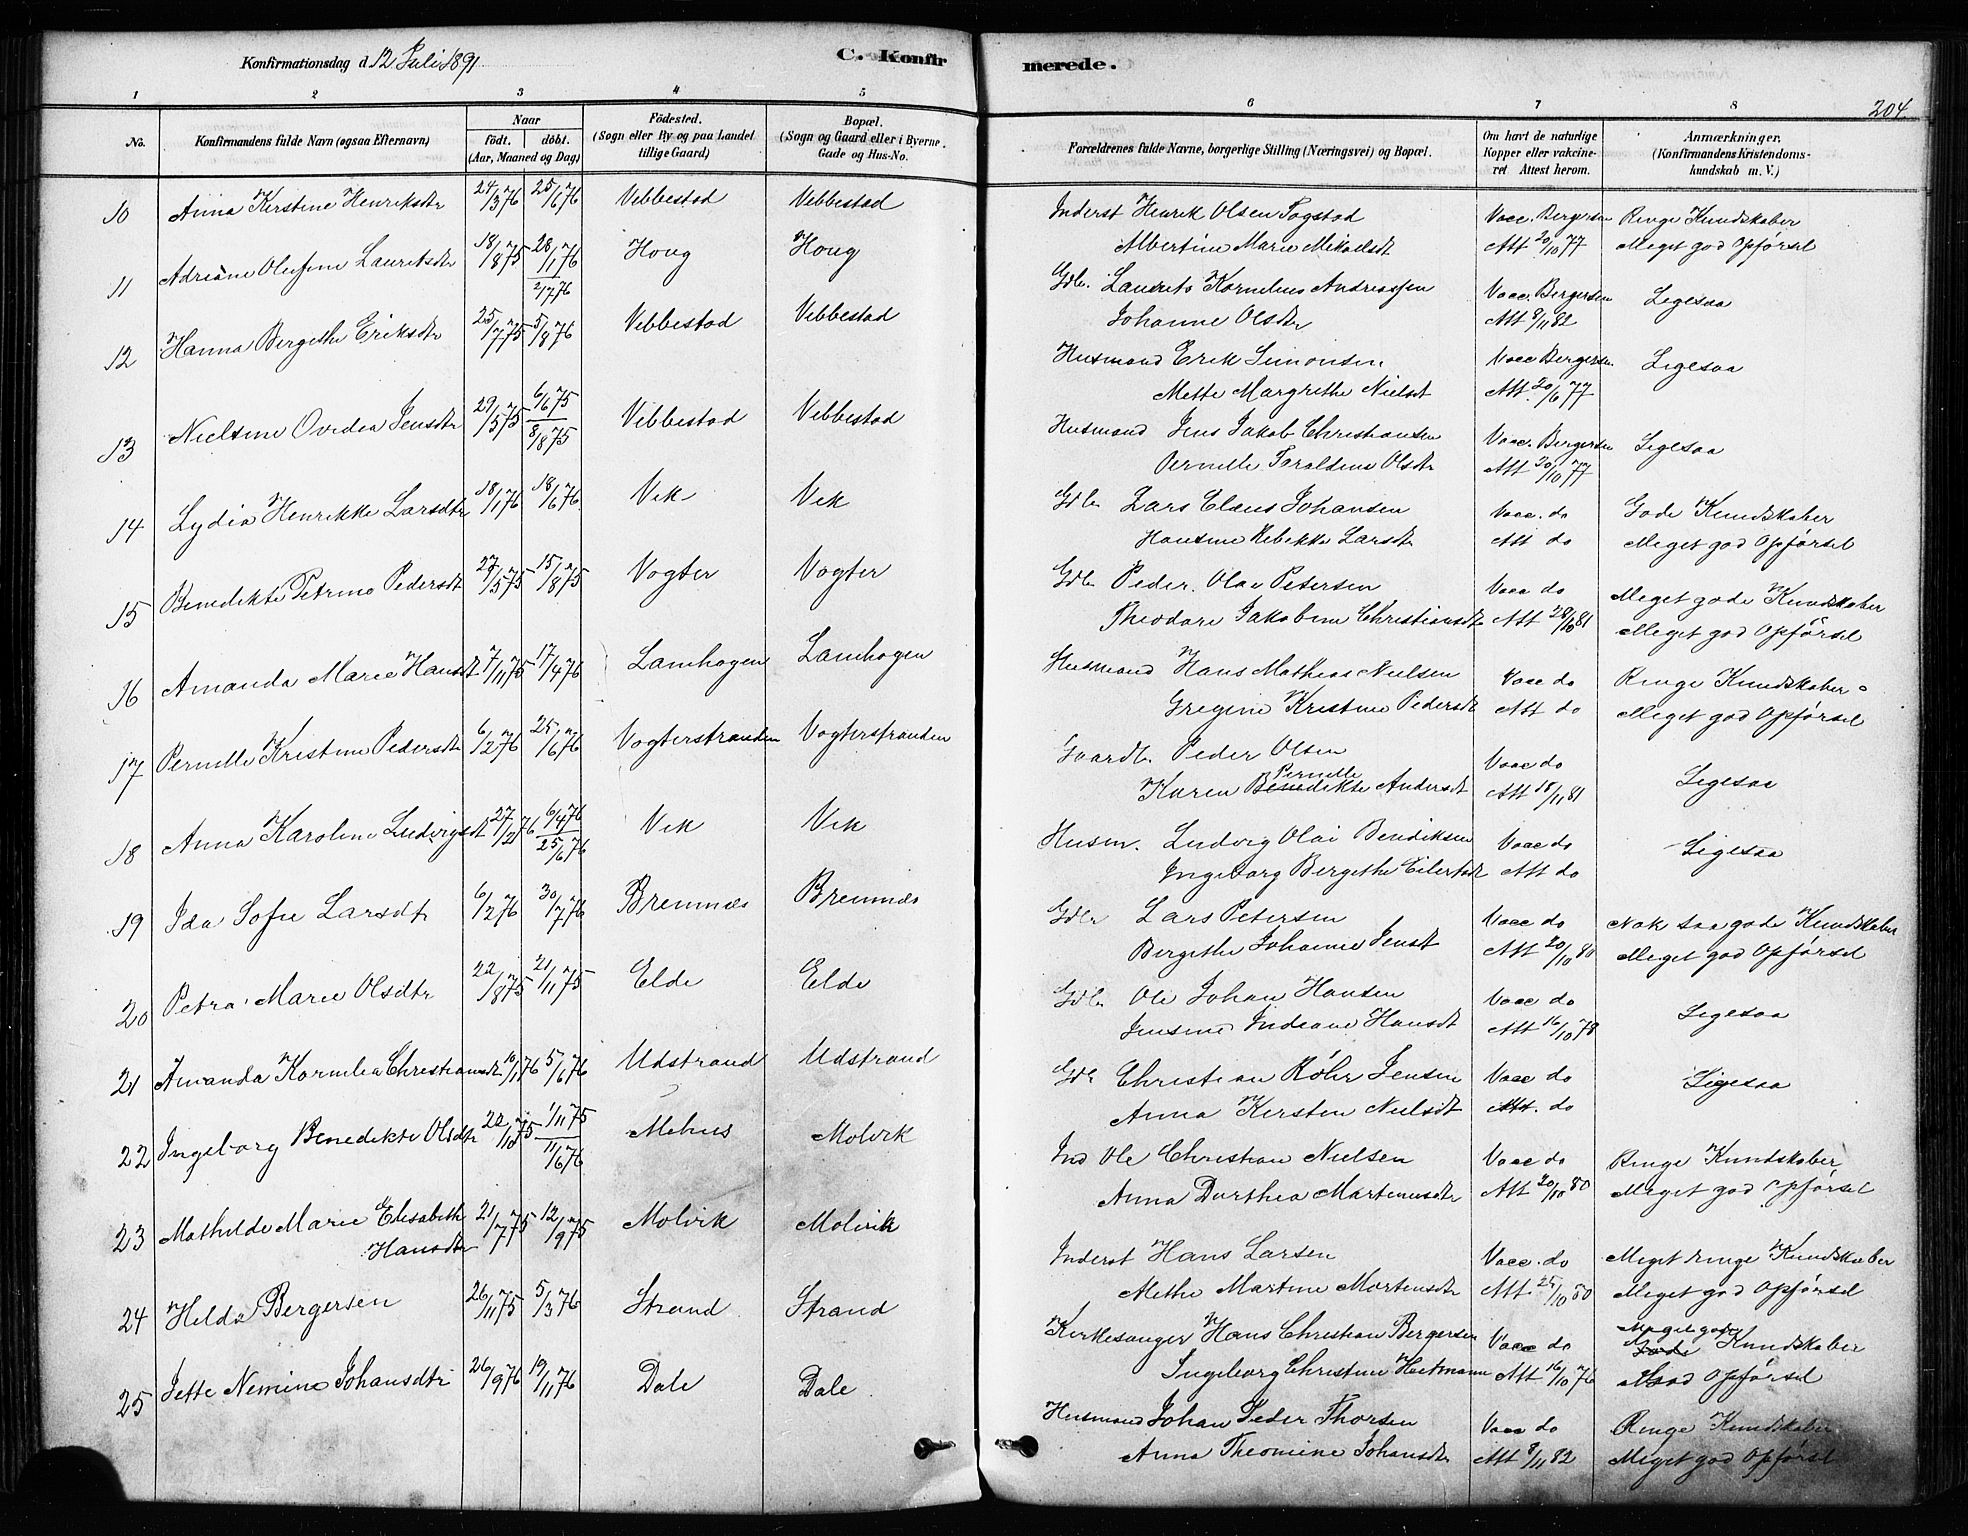 Konfirmationsdag d. 12 Juli 1891
C. Konfir
merede.
204
1 2 3 4 5 6 7 8
No.
Konfirmandens fulde Navn (ogsaa Efternavn)
Naar
födt. döbt.
(Aar, Maaned og Dag)
Födested.
(Sogn eller By og paa Landet
tillige Gaard)
Bopæl.
(Sogn og Gaard eller i Byerne
Gade og Hus-No.
Forældrenes fulde Navne, borgerlige Stilling (Næringsvei) og Bopæl.
Om havt de naturlige
Kopper eller vakcine-
ret Attest herom.
Anmærkninger.
(Konfirmandens Kristendoms-
kundskab m. V.)
10 Anna Kirstine Henriksdtr 24/3 76 25/6 76 Vebbestad Vebbestad
Inderst Henrik Olsen Fogstad Vacc. Bergersen Ringe Kundskaber
Albertine Marie Mikaelsdt Att 20/10 77 Meget god Opförsel
11 Adriane Olufine Lauritsdtr 18/8 75 28/1 76 2/7 76 Houg Houg
Gdb. Laurits Kornelius Andreassen Vacc. Bergersen Ligesaa
Johanne Olsdtr Att 8/11 82
12 Hanna Bergithe Eriksdtr 25/7 75 5/8 76 Vebbestad Vebbestad
Husmand Erik Simonsen Vacc Bergersen Ligesaa
Mette Margrethe Nielsdt Att. 20/6 77
13 Nielsine Ovedea Jensdtr 29/5 75 6/6 75 8/8 75 Vebbestad Vebbestad
Husmand Jens Jakob Christiansen Vacc. Bergersen Ligesaa
Pernille Taraldine Olsdtr Att 20/10 77
14 Lydia Henrikke Larsdtr 18/1 76 18/6 76 Vik Vik
Gdb Lars Claus Johansen Vacc. do Gode Kundskaber
Hansine Rebekke Larsdtr Att do Meget god Opförsel
15 Benedikte Petrine Pedersdt 27/5 75 15/8 75 Vogter Vogter
Gdb Peder Olai Petersen Vacc do Meget gode Kundskaber
Theodore Jakobine Christiansdt Att 28/10 81 Meget god Opförsel
16 Amanda Marie Hansdt 7/11 75 17/4 76 Lamhagen Lamhagen
Husmand Hans Mathias Nielsen Vacc do Ringe Kundskaber
Gregine Kristine Pedersdt Att do Meget god Opförsel
17 Pernille Kristine Pedersdtr 6/2 76 25/6 76 Vogterstranden Vogterstranden
Gaardb. Peder Olsen Vacc do Ligesaa
Pernille
Karen Benedikte Andersdt Att 18/11 81
18 Anna Karoline Ludvigsdt 27/2 76 6/4 76 25/6 76 Vik Vik
Husm. Ludvig Olai Bendiksen Vacc do Ligesaa
Ingeborg Bergithe Eilertsdt Att do
19 Ida Sofie Larsdt 6/2 76 30/7 76 Bremnæs Bremnæs
Gdb Lars Petersen Vacc do Nok saa gode Kundskaber
Bergithe Johanne Jensdt Att 20/10 80 Meget god Opförsel
20 Petra Marie Olsdtr 22/8 75 21/11 75 Elde Elde
Gdb Ole Johan Hansen Vacc do Ligesaa
Jensine Indiane Hansdt Att 16/10 78
21 Amanda Kornelia Christiansdt 10/1 76 5/6 76 Udstrand Udstrand
Gdb Christian Röhr Jensen Vacc do Ligesaa
Anna Kirsten Nielsdt Att. do
22 Ingeborg Benedikte Olsdtr 22/10 75 1/11 75 11/6 76 Mehus Molvik
Ind Ole Christian Nielsen Vacc do Ringe Kundskaber
Anna Dorthea Martinusdtr Att 20/10 80 Meget god Opförsel
23 Mathilde Marie Elisabeth 21/7 75 12/9 75 Molvik Molvik
Hansdtr
Inderst Hans Larsen Vacc. do Meget ringe Kundskaber
Methe Martine Mortensdtr Att. 25/10 80 Meget god Opförsel
24 Helda Bergersen 26/11 75 5/3 76 Strand Strand
Kirkesanger Hans Christian Bergersen Vacc do Meget gode Kundskaber
Ingeborg Christine Heitmann Att 16/10 76 God Opförsel
25 Jette Nemine Johansdtr 26/9 76 19/11 76 Dale Dale
Husmand Johan Peder Thorsen Vacc do Ringe Kundskaber
Anna Theomine Johansdtr Att 8/11 82 Meget god Opförsel